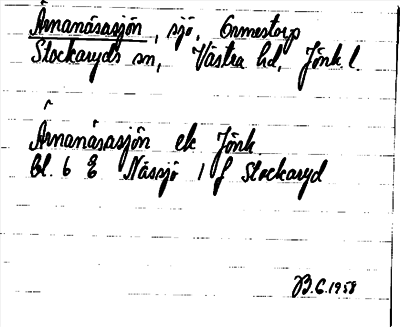 Årnanäsasjön, sjö, Ormestorp
Stockaryds sn, Västra hd, Jönk l.
Årnanäsasjön ek Jönk
bl. 6 E Nässjö 1 f Stockaryd
B.G. 1958